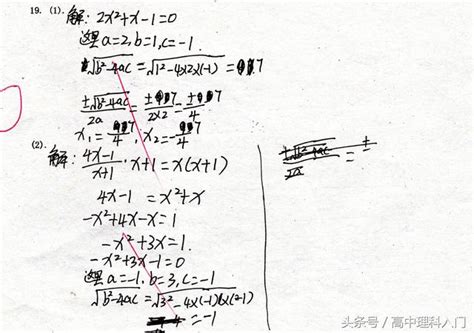 19. (1). 解: 2x²+x-1=0
这里 a=2, b=1, c=-1.
√b²-4ac = √1²-4×2×(-1) = 7
±√b²-4ac / 2a = ±7 / 2×2 = ±7 / 4
x₁ = 7/4, x₂ = -7/4
(2). 解: 4x-1 / x+1 · x+1 = x(x+1)
4x-1 = x²+x
-x²+4x-x=1
-x²+3x=1.
-x²+3x-1=0
这里 a=-1, b=3, c=-1
√b²-4ac = √3²-4×(-1)×(-1)
=-1
头条号 / 高中理科入门